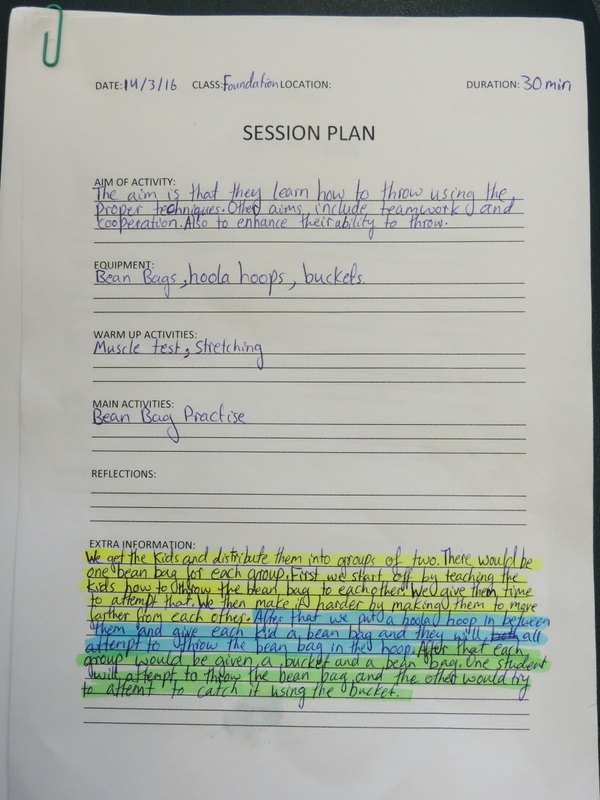 DATE: 14/3/16 CLASS: Foundation LOCATION: DURATION: 30 min
SESSION PLAN
AIM OF ACTIVITY:
The aim is that they learn how to throw using the
proper techniques. Other aims include teamwork and
cooperation. Also to enhance their ability to throw.
EQUIPMENT:
Bean Bags, hoola hoops, buckets.
WARM UP ACTIVITIES:
Muscle test, stretching
MAIN ACTIVITIES:
Bean Bag Practise
REFLECTIONS:
EXTRA INFORMATION:
We get the kids and distribute them into groups of two. There would be
one bean bag for each group. First we start off by teaching the
kids how to throw the bean bag to eachother. We give them time
to attempt that. We then make it harder by making them to move
farther from each other. After that we put a hoola hoop in between
them and give each kid a bean bag and they will both all
attempt to throw the bean bag in the hoop. After that each
group would be given a bucket and a bean bag. One student
will attempt to throw the bean bag and the other would try
to attemt to catch it using the bucket.